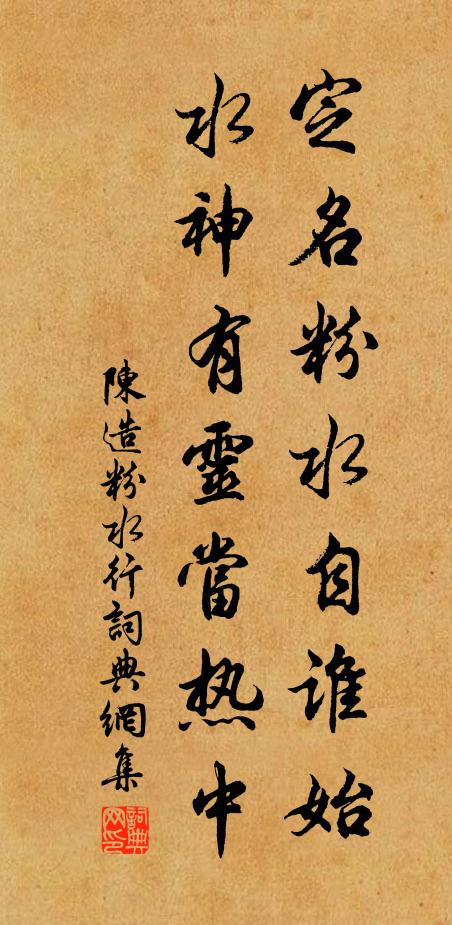 定名粉水自誰始
水神有靈當热中
陳造粉水行詞典網集
詞典网印